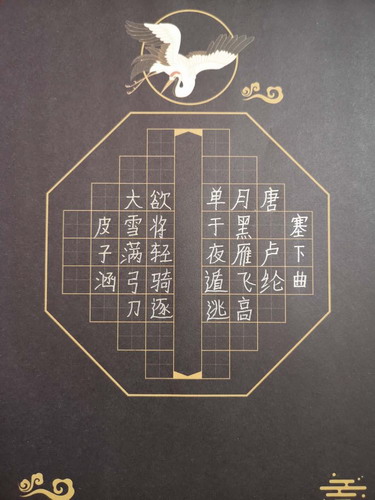 塞下曲
唐 卢纶
月黑雁飞高
单于夜遁逃
欲将轻骑逐
大雪满弓刀
皮子涵